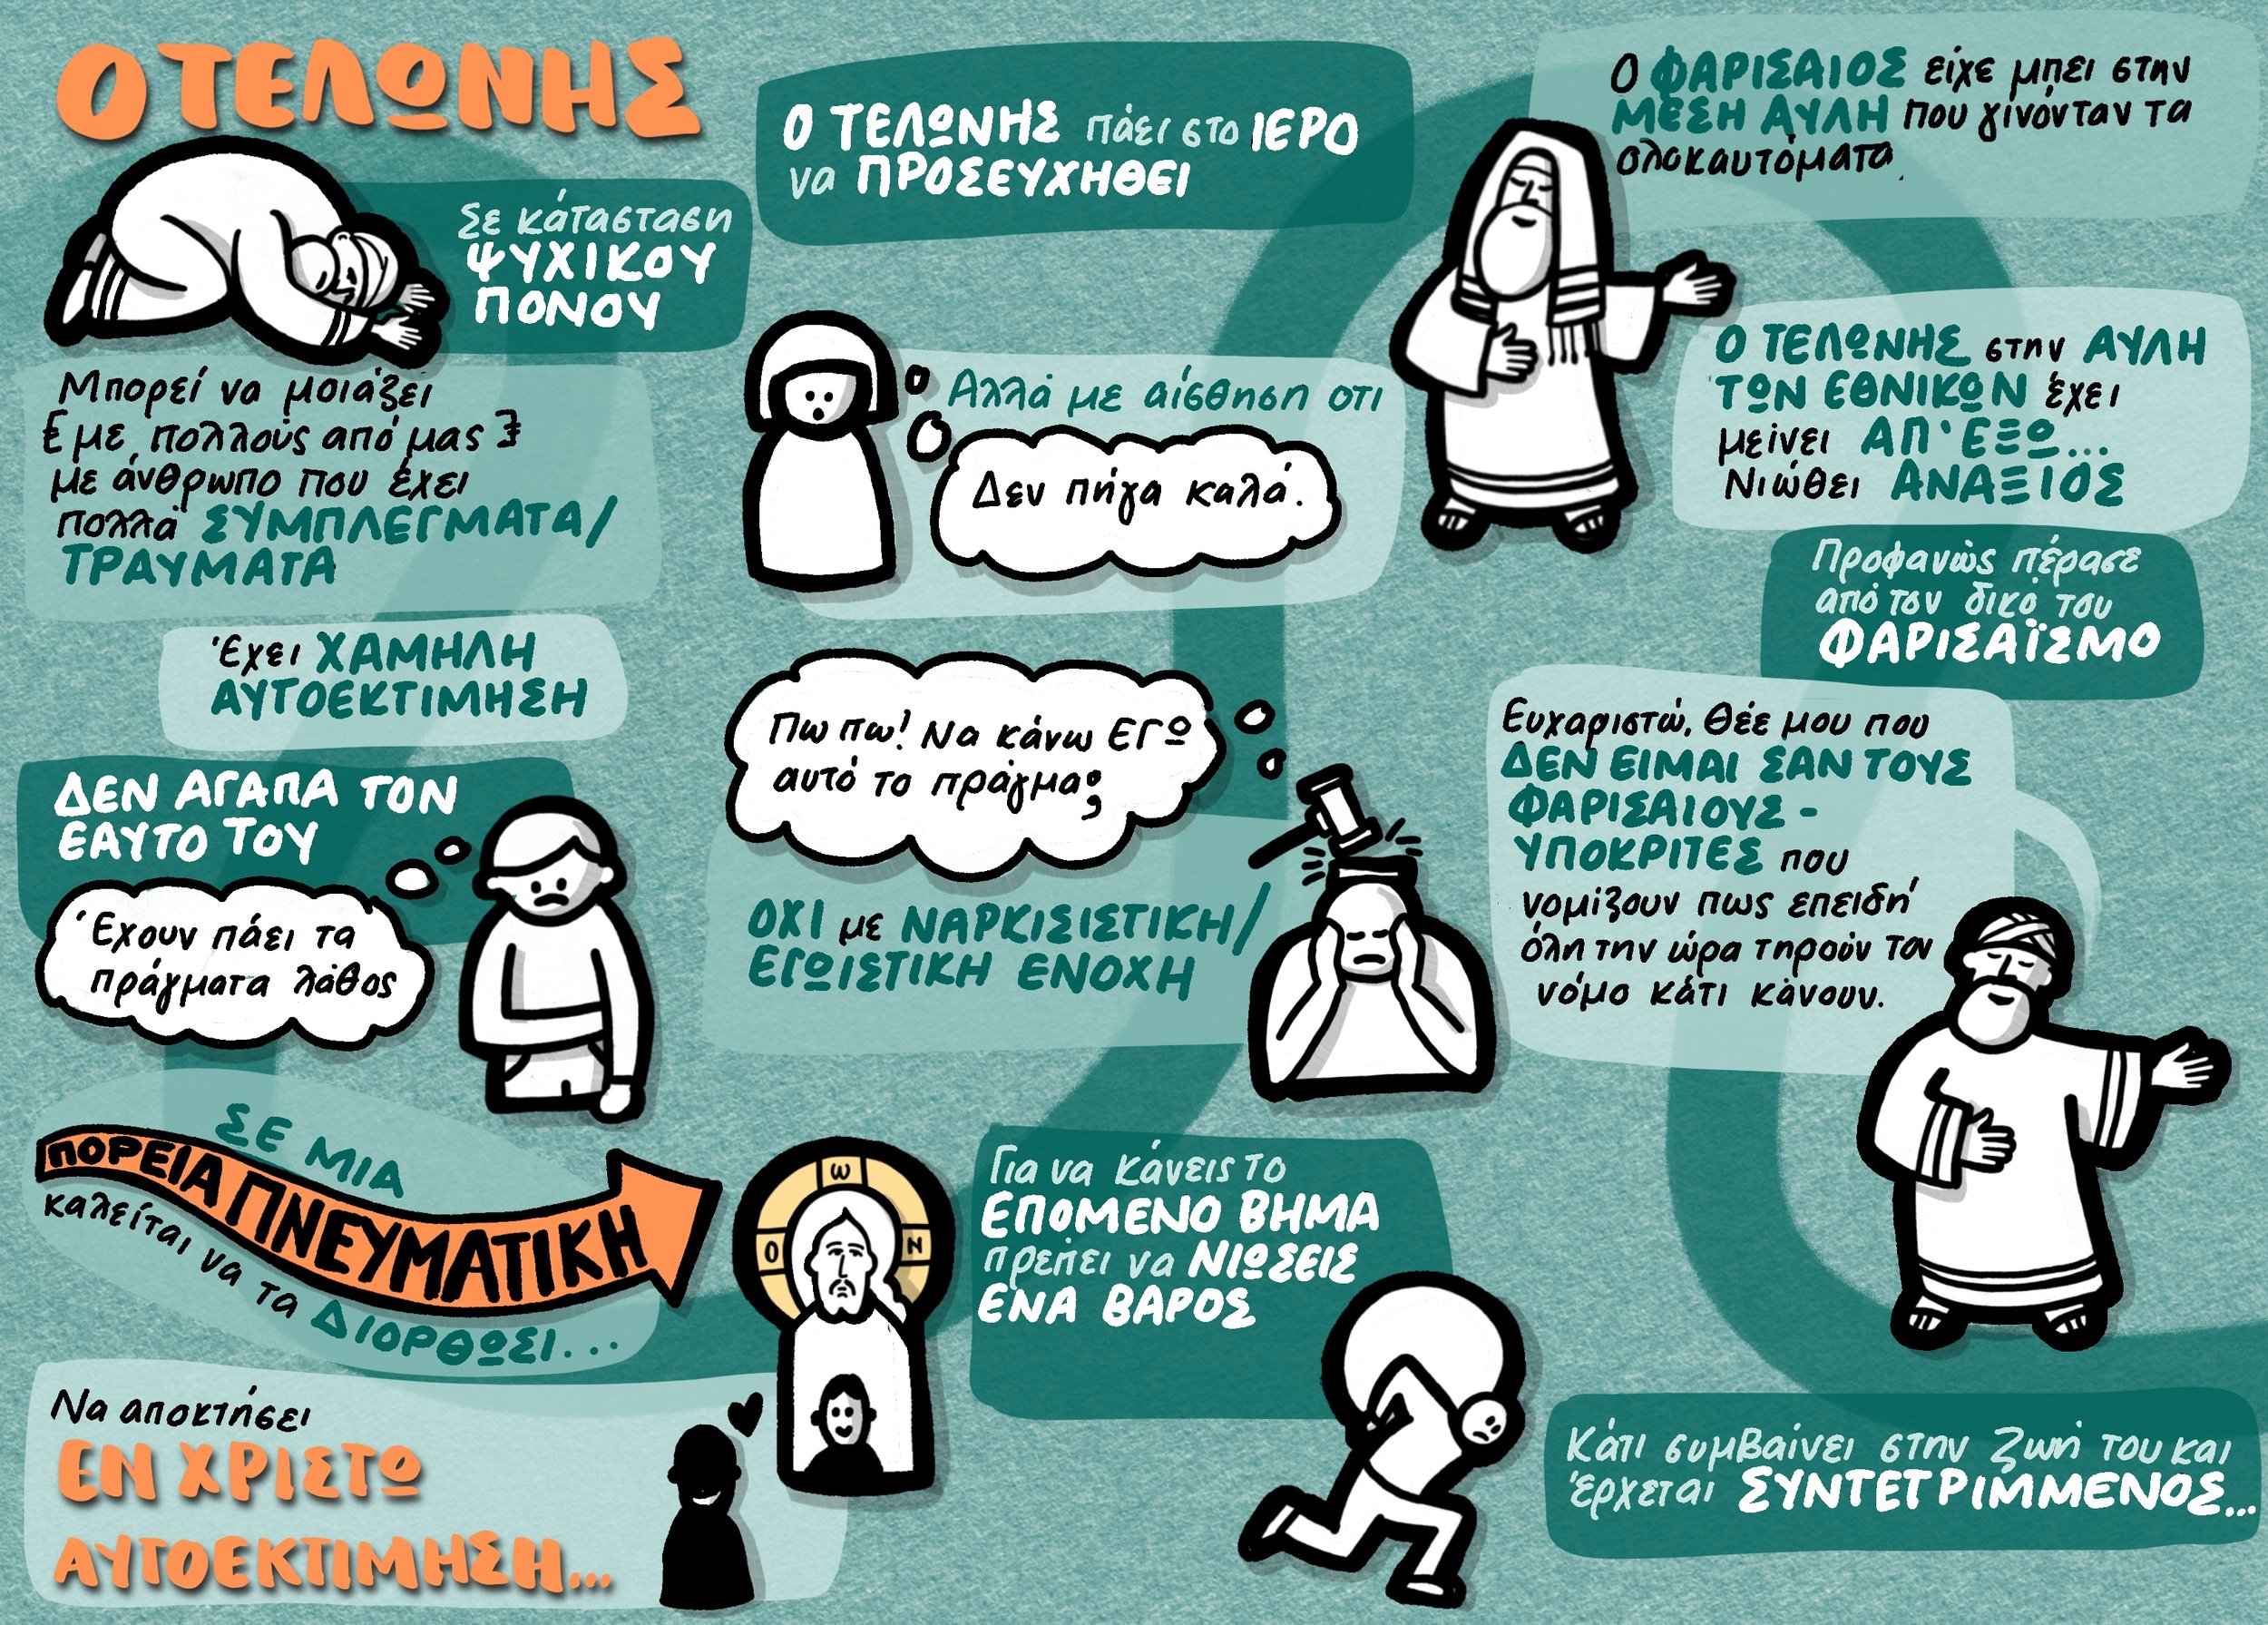 Ο ΤΕΛΩΝΗΣ
Σε κάτασταση
ΨΥΧΙΚΟΥ
ΠΟΝΟΥ
Μπορεί να μοιάξει
[με πολλούς από μας]
με άνθρωπο που έχει
πολλά ΣΥΜΠΛΕΓΜΑΤΑ/
ΤΡΑΥΜΑΤΑ
Έχει ΧΑΜΗΛΗ
ΑΥΤΟΕΚΤΙΜΗΣΗ
ΔΕΝ ΑΓΑΠΑ ΤΟΝ
ΕΑΥΤΟ ΤΟΥ
Έχουν πάει τα
πράγματα λάθος
ΣΕ ΜΙΑ
ΠΟΡΕΙΑ ΠΝΕΥΜΑΤΙΚΗ
καλείται να τα ΔΙΟΡΘΩΣΙ...
Να αποκτήσει
ΕΝ ΧΡΙΣΤΩ
ΑΥΤΟΕΚΤΙΜΗΣΗ...
Ο ΤΕΛΩΝΗΣ πάει στο ΙΕΡΟ
να ΠΡΟΣΕΥΧΗΘΕΙ
Αλλά με αίσθηση οτι
Δεν πήγα καλά.
Πω πω! Να κάνω ΕΓΩ
αυτό το πράγμα;
ΟΧΙ με ΝΑΡΚΙΣΙΣΤΙΚΗ/
ΕΓΩΙΣΤΙΚΗ ΕΝΟΧΗ
Ο Ω Ν
Για να κάνεις το
ΕΠΟΜΕΝΟ ΒΗΜΑ
πρέπει να ΝΙΩΣΕΙΣ
ΕΝΑ ΒΑΡΟΣ
Ο ΦΑΡΙΣΑΙΟΣ είχε μπει στην
ΜΕΣΗ ΑΥΛΗ που γίνόνταν τα
ολοκαυτόματα.
Ο ΤΕΛΩΝΗΣ στην ΑΥΛΗ
ΤΩΝ ΕΘΝΙΚΩΝ έχει
μείνει ΑΠ'ΕΞΩ...
Νιώθει ΑΝΑΞΙΟΣ
Προφανώς πέρασε
από τον δικό του
ΦΑΡΙΣΑΪΣΜΟ
Ευχαριστώ, Θέε μου που
ΔΕΝ ΕΙΜΑΙ ΣΑΝ ΤΟΥΣ
ΦΑΡΙΣΑΙΟΥΣ -
ΥΠΟΚΡΙΤΕΣ που
νομίζουν πως επειδή
όλη την ώρα τηρούν τον
νόμο κάτι κάνουν.
Κάτι συμβαίνει στην ζωή του και
έρχεται ΣΥΝΤΕΤΡΙΜΜΕΝΟΣ...